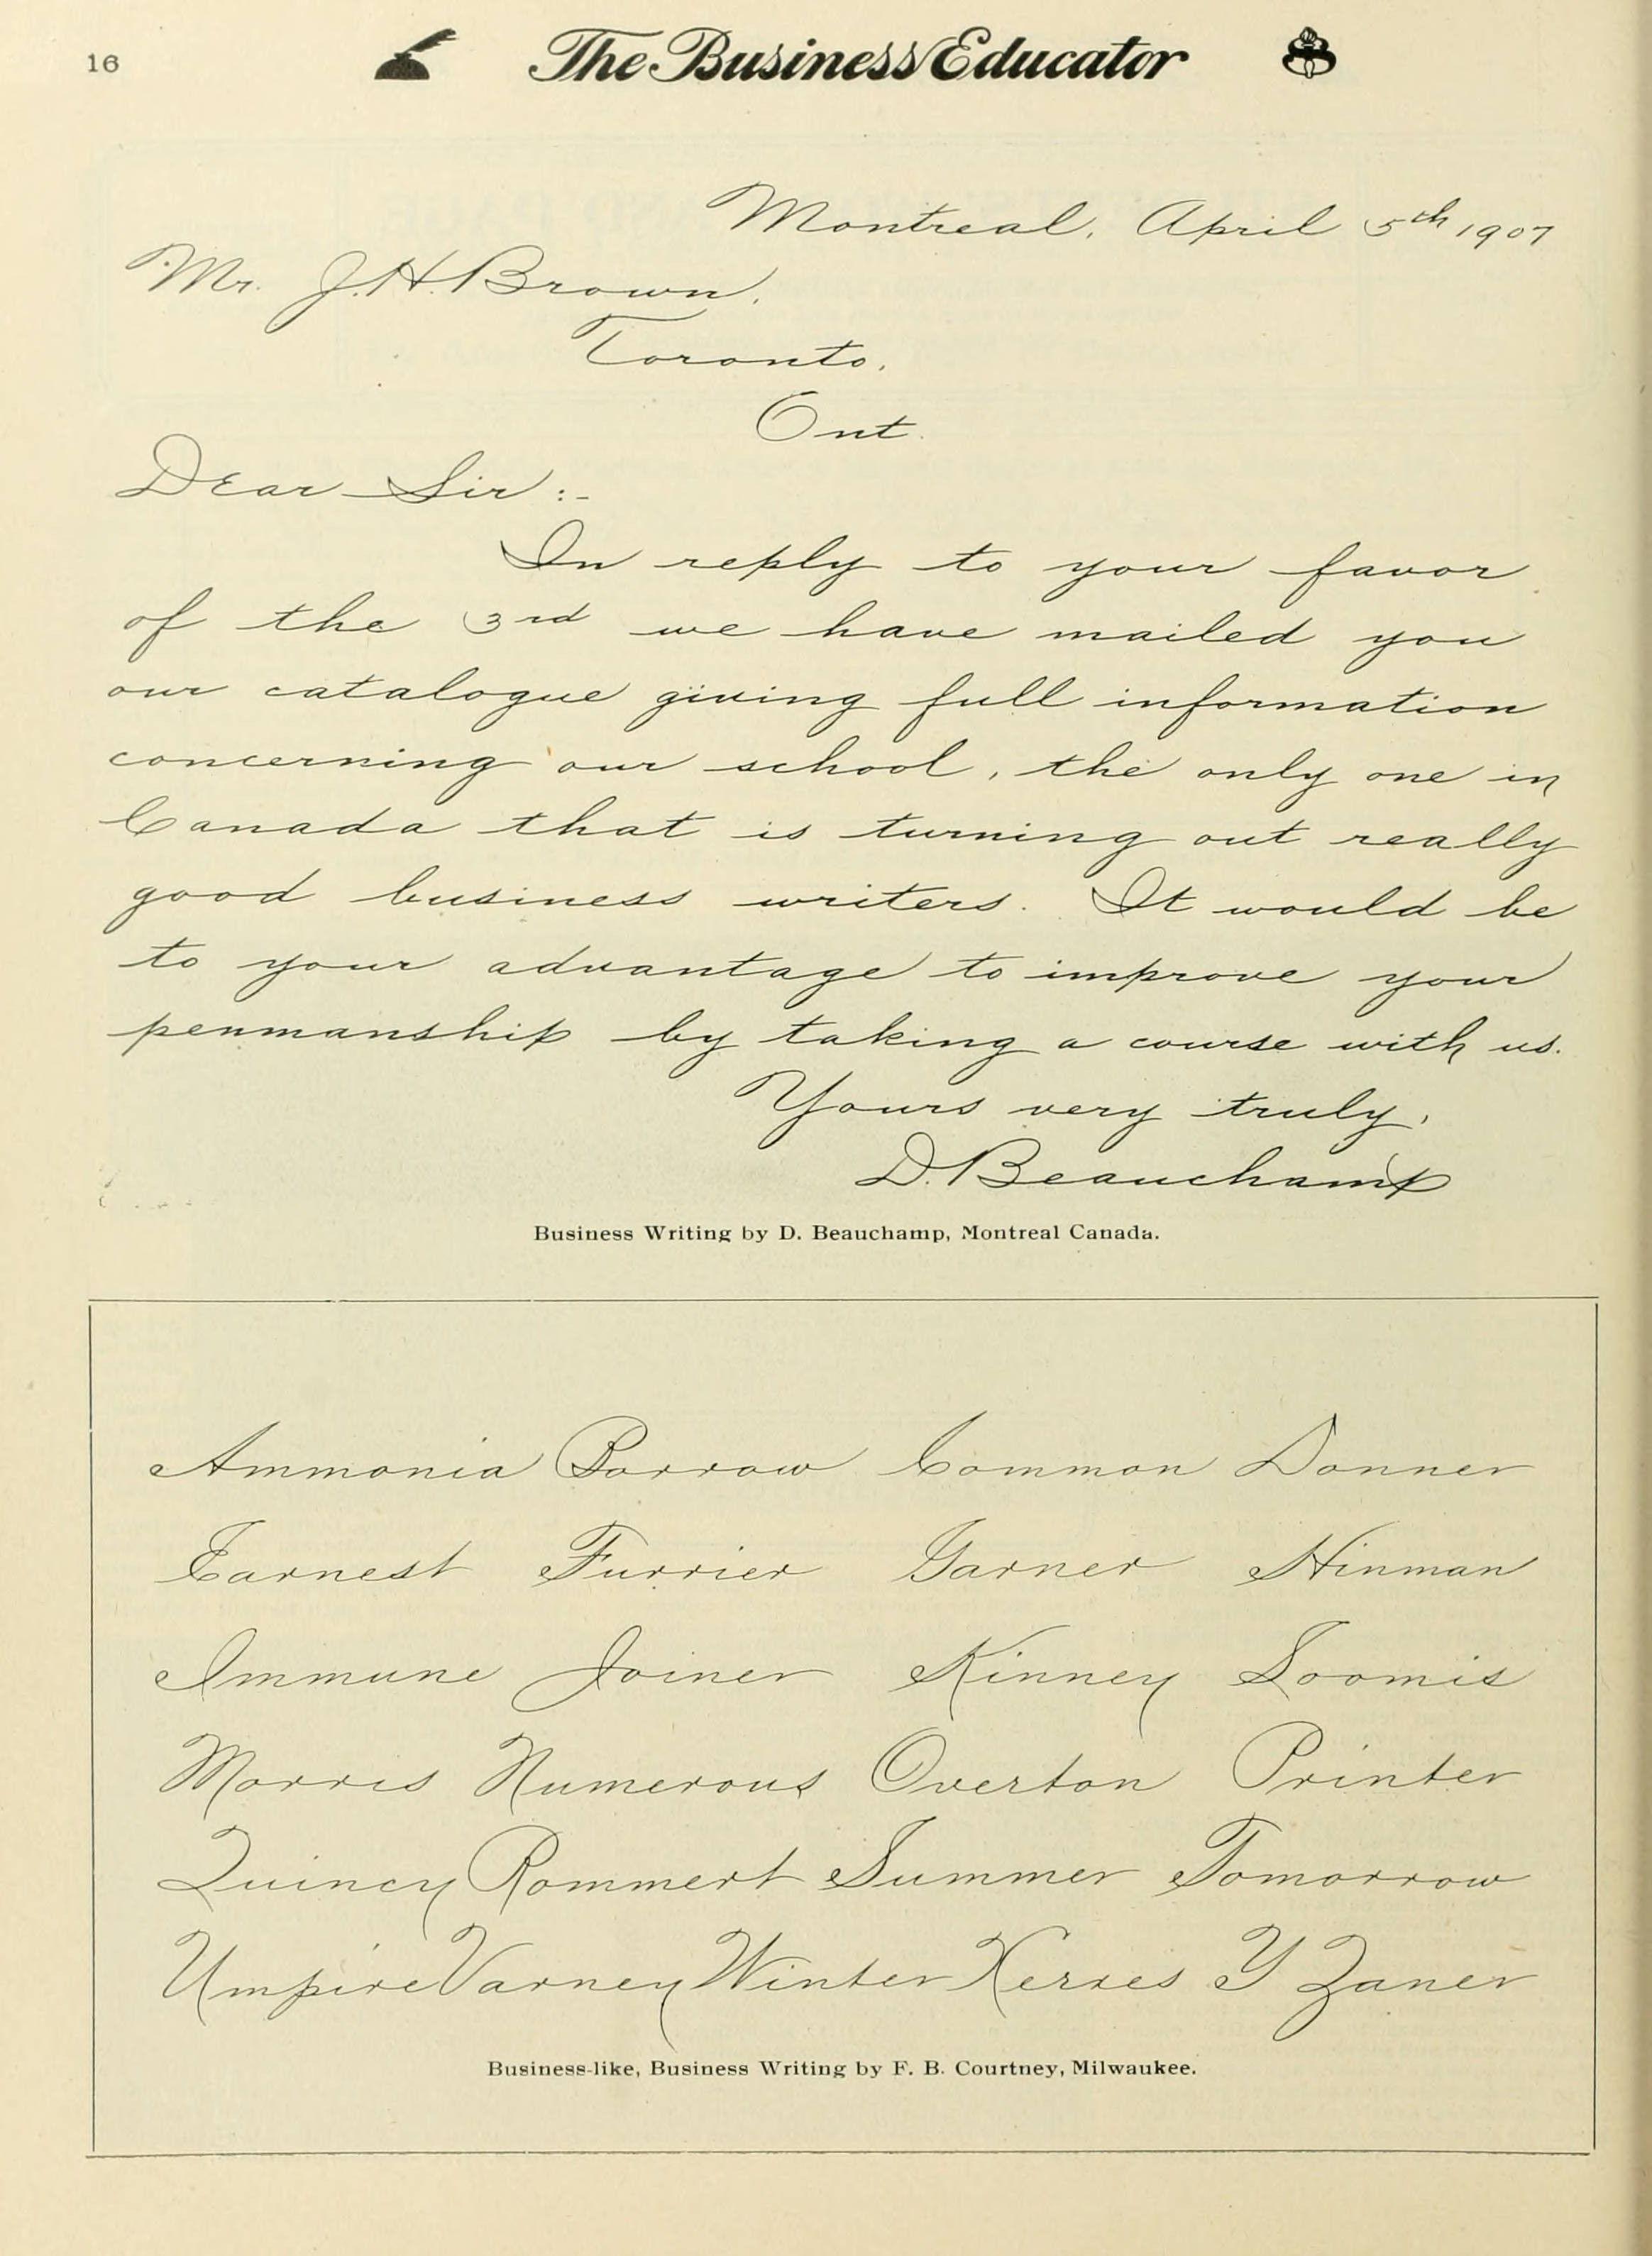 16
The Business Educator
Montreal, April 5th 1907
Mr. J. H. Brown,
Toronto,
Ont.
Dear Sir :-
In reply to your favor
of the 3rd we have mailed you
our catalogue giving full information
concerning our school, the only one in
Canada that is turning out really
good business writers. It would be
to your advantage to improve your
penmanship by taking a course with us.
Yours very truly,
D. Beauchamp
Business Writing by D. Beauchamp, Montreal Canada.
Ammonia Borrow Common Donner
Earnest Furrier Garner Hinman
Immune Joiner Kinney Loomis
Morris Numerous Overton Printer
Quincy Rommert Summer Tomorrow
Umpire Varney Winter Xerxes Y Zaner
Business-like, Business Writing by F. B. Courtney, Milwaukee.